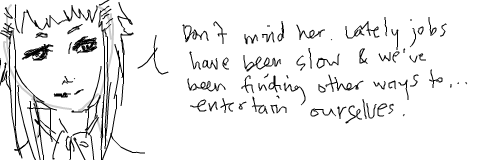 Don't mind her. Lately jobs
have been slow & we've
been finding other ways to...
entertain ourselves.